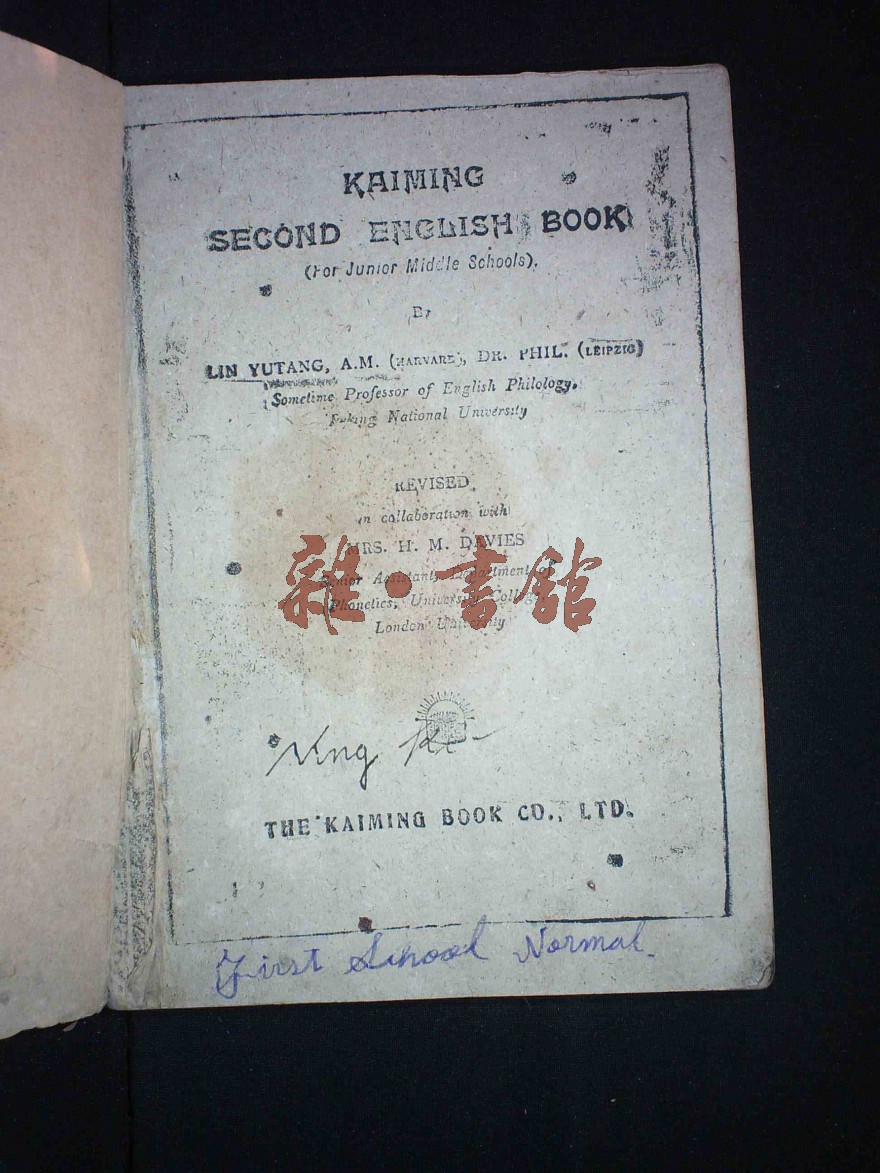 KAIMING
SECOND ENGLISH BOOK
(For Junior Middle Schools).
By
LIN YUTANG, A.M. (HARVARD), DR. PHIL. (LEIPZIG)
Sometime Professor of English Philology,
Peking National University
REVISED
in collaboration with
MRS. H. M. DAVIES
Senior Assistant, Department of
Phonetics, University College
London University
雜·書館
THE KAIMING BOOK CO., LTD.
First School Normal.